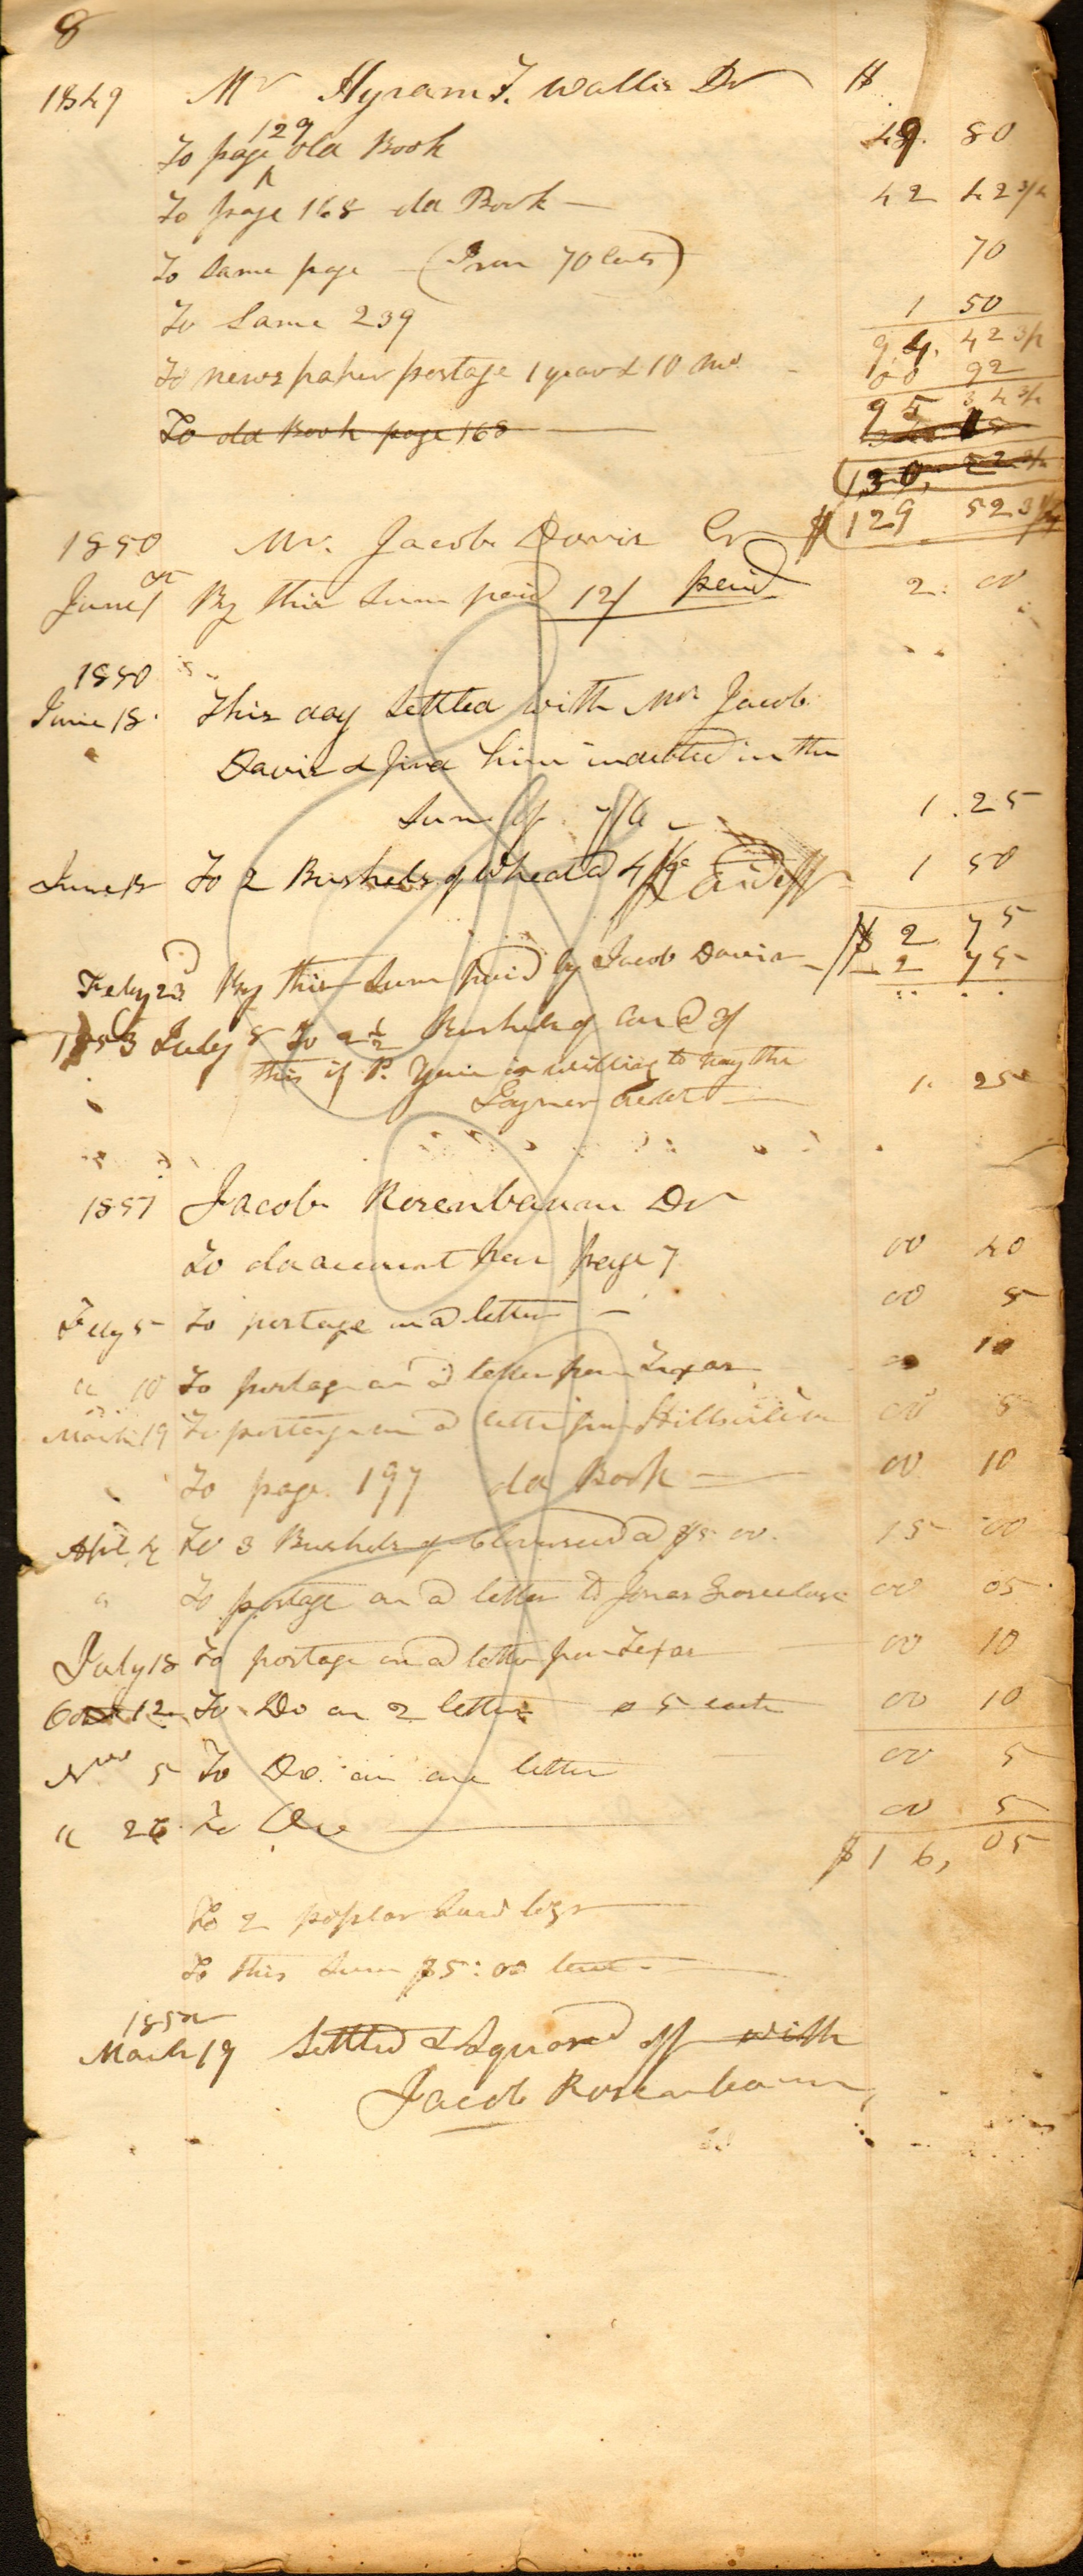 8
1849 Mr Hyram F. Wallis Dr $
To page 129 old Book 49. 80
To page 168 old Book 42 42 3/4
To Same page (Iron 70 Cents) 70
To Same 239 1 50
94. 42 3/4
To news paper postage 1 year & 10 mo 00 92
95 34 3/4
To old Book page 168
130,
$129 52 3/4
1850 Mr. Jacob Davis Cr
June 1 By this Sum paid 12/ paid 2: 00
1850
June 18. This day Settled with Mr Jacob
Davis & find him indebted in the
Sum of 7/6 1.25
June To 2 Bushels of Wheat @ 4/6 1 50
$2 75
Feby 23 By this Sum paid by Jacob Davis 2 75
1853 July 8 To 2 1/2 Bushels of @ 3/
this if P. is willing to pay the
1. 25
1851 Jacob Rosenbaum Dr
To old account from page 7 00 40
Feby 5 To postage on a letter 00 5
" 10 To postage on a letter from Texas 10
March 19 To postage on a letter from Hillsville 00 5
To page 197 old Book 00 10
Apl 4 To 3 Bushels of Cloverseed @ $5 00. 15 00
" To postage on a letter to Jonas 00 05
July 18 To postage on a letter from Texas 00 10
Oct 12 To Do on 2 letters @ 5 each 00 10
Nov 5 To Do. on one letter 00 5
" 26 To One 00 5
$16, 05
To 2 poplar Saw logs
To this Sum $5:00 lent
1852
March 19 Settled & Squared off with
Jacob Rosenbaum